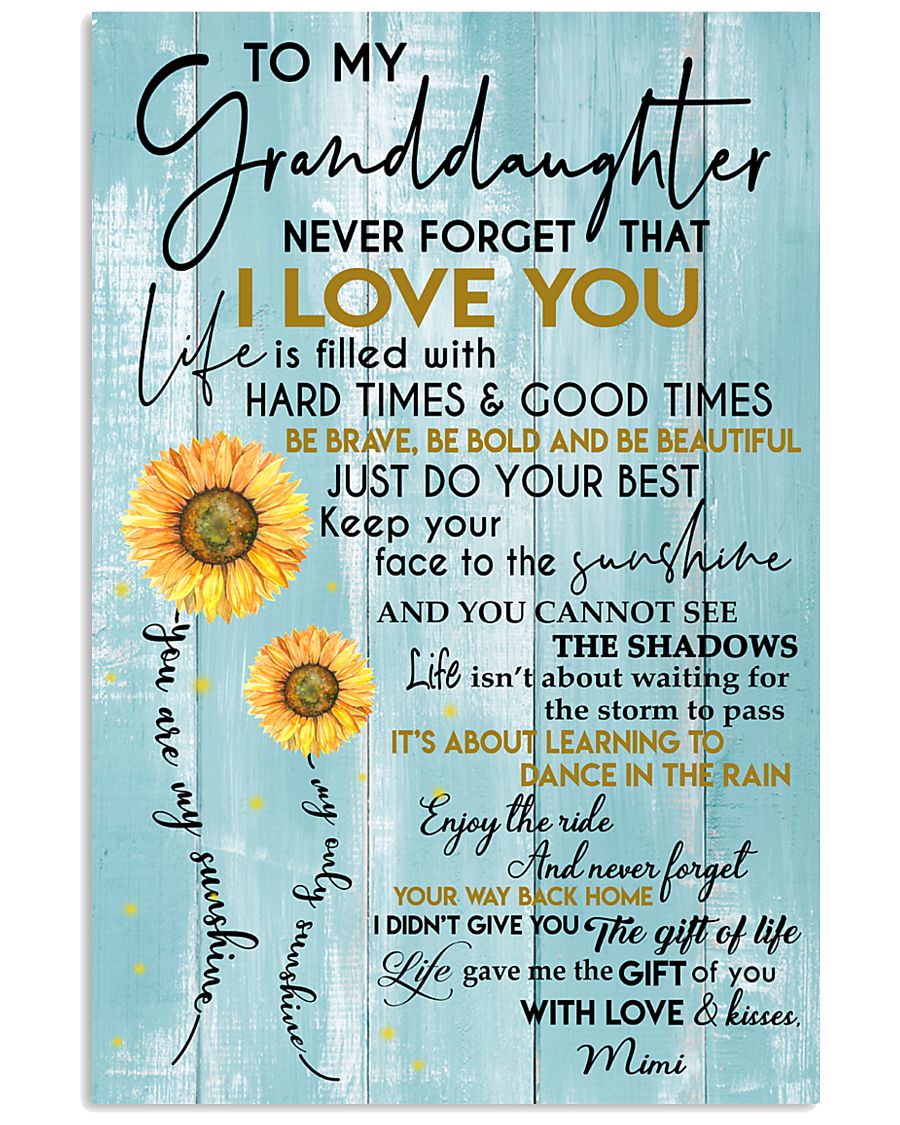 TO MY
Granddaughter
NEVER FORGET THAT
I LOVE YOU
Life is filled with
HARD TIMES & GOOD TIMES
BE BRAVE, BE BOLD AND BE BEAUTIFUL
JUST DO YOUR BEST
Keep your
face to the sunshine
AND YOU CANNOT SEE
THE SHADOWS
Life isn't about waiting for
the storm to pass
IT'S ABOUT LEARNING TO
DANCE IN THE RAIN
Enjoy the ride
And never forget
YOUR WAY BACK HOME
I DIDN'T GIVE YOU The gift of life
Life gave me the GIFT of you
WITH LOVE & kisses,
Mimi
you are my sunshine
my only sunshine